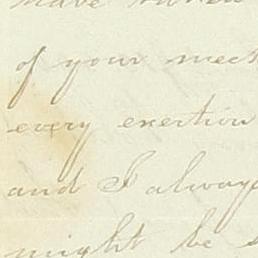 have
of your meet
every exertion
and I always
might be s